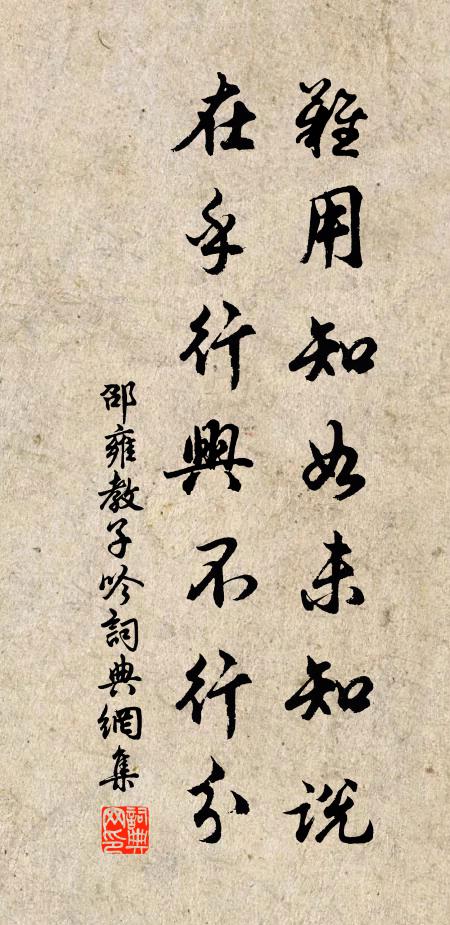 難用知如未知説
在乎行與不行分
邵雍教子吟詞典網集
詞典網印